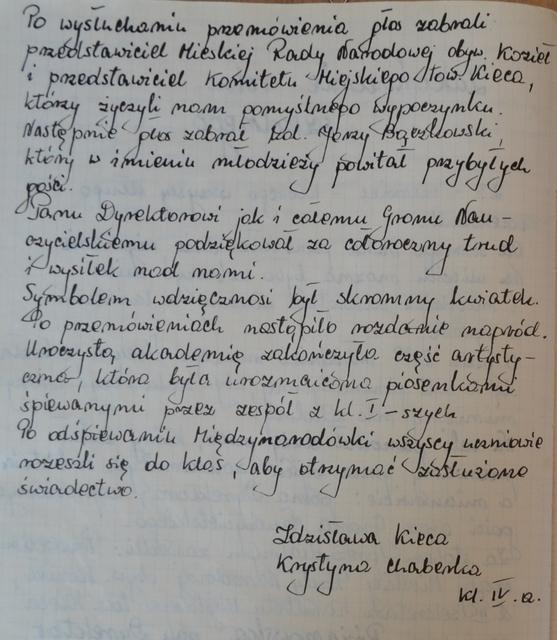 Po wysłuchaniu przemówienia głos zabrali
przedstawiciel Miejskiej Rady Narodowej obyw. Kozieł
i przedstawiciel Komitetu Miejskiego tow. Kieca,
którzy życzyli nam pomyślnego wypoczynku.
Następnie głos zabrał kol. Jerzy Bączkowski,
który w imieniu młodzieży powitał przybyłych
gości.
Panu Dyrektorowi jak i całemu Gronu Nau-
czycielskiemu podziękował za całoroczny trud
i wysiłek nad nami.
Symbolem wdzięcznosi był skromny kwiatek.
Po przemówieniach nastąpiło rozdanie nagród.
Uroczystą akademię zakończyła część artysty-
czna, która była urozmaicona piosenkami
śpiewanymi przez zespół z kl. I-szych
Po odśpiewaniu Międzynarodówki wszyscy uczniowie
rozeszli się do klas, aby otrzymać zasłużone
świadectwo.
Zdzisława Kieca
Krystyna Chabenka
kl. IV a.